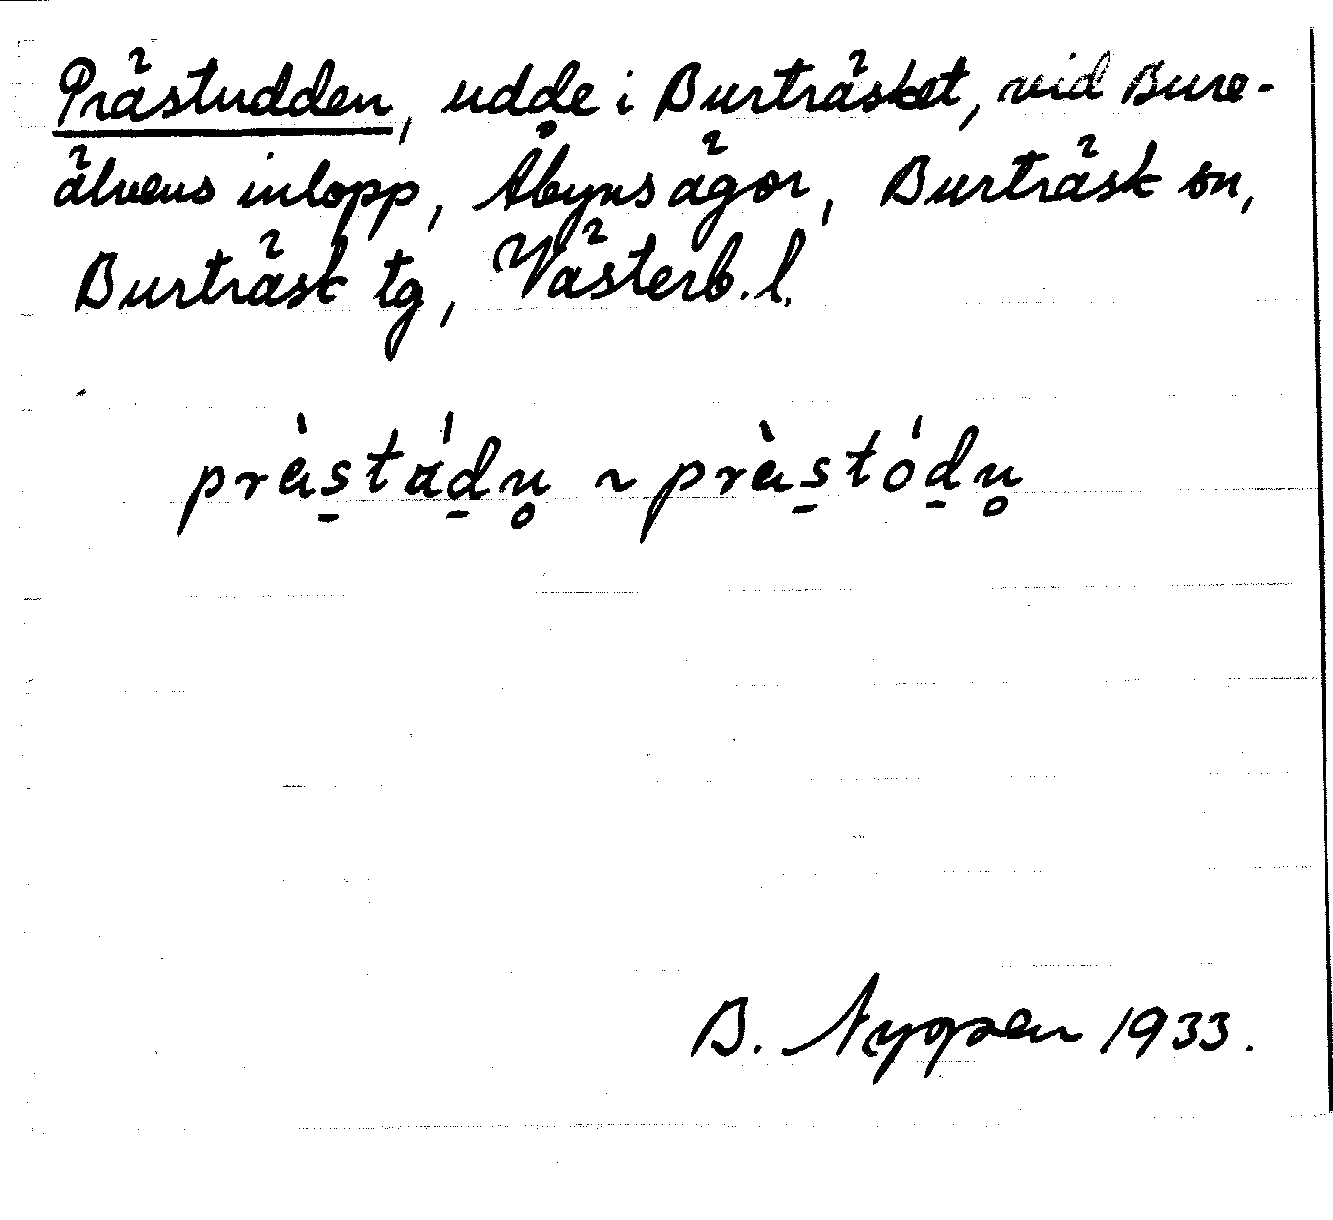 Prästudden, udde i Burträsket, vid Bure-
älvens inlopp, Åbyns ägor, Burträsk sn,
Burträsk tg, Västerb. l.
præ̀s̠tɑ́d̠n̥ ~ præ̀s̠tód̠n̥
B. 1933.